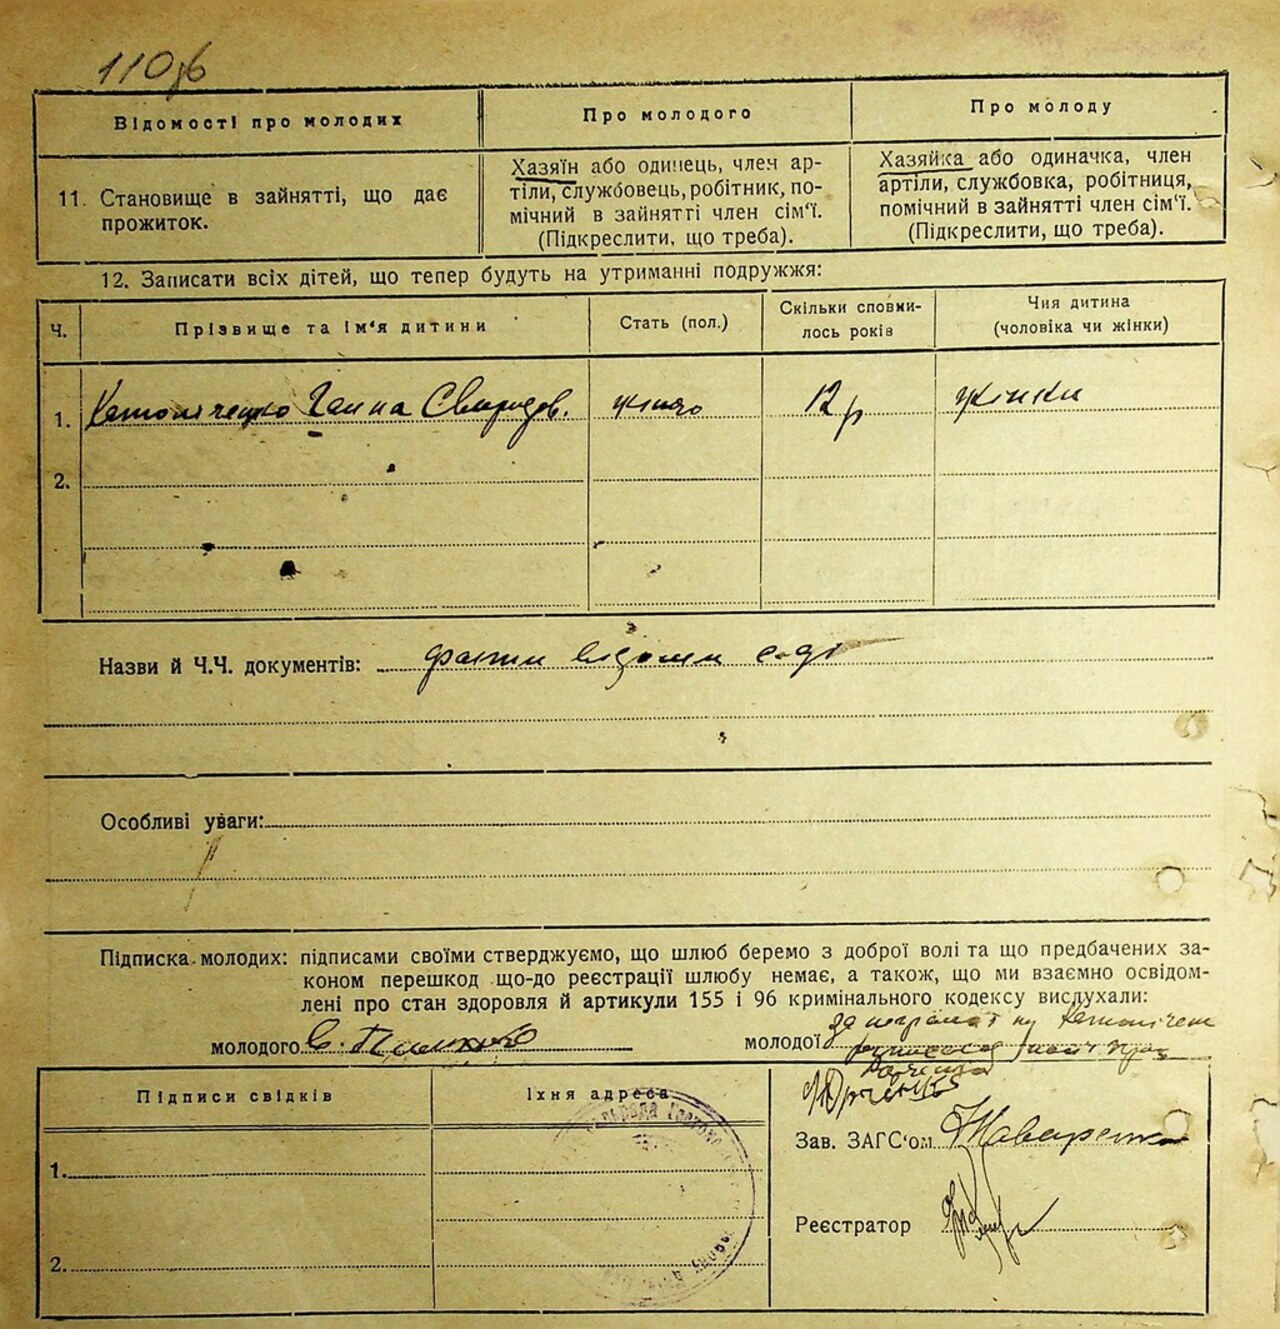 110
Відомості про молодих
Про молодого
Про молоду
11. Становище в зайнятті, що дає прожиток.
Хазяїн або одинець, член ар-
тіли, службовець, робітник, по-
мічний в зайнятті член сім'ї.
(Підкреслити, що треба).
Хазяйка або одиначка, член
артіли, службовка, робітниця,
помічний в зайнятті член сім'ї.
(Підкреслити, що треба).
12. Записати всіх дітей, що тепер будуть на утриманні подружжя:
Ч.
Прізвище та ім'я дитини
Стать (пол.)
Скільки сповни-
лось років
Чия дитина
(чоловіка чи жінки)
1. Ганна Свиридов. 12 р жінки
2.
Назви й Ч.Ч. документів: відомі
Особливі уваги:
Підписка молодих: підписами своїми стверджуємо, що шлюб беремо з доброї волі та що предбачених за-
коном перешкод що-до реєстрації шлюбу немає, а також, що ми взаємно освідом-
лені про стан здоровля й артикули 155 і 96 кримінального кодексу вислухали:
молодого
молодої
Підписи свідків
Їхня адреса
1.
2.
Зав. ЗАГС'ом
Реєстратор